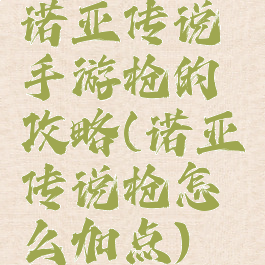 诺亚传说
手游枪的
攻略(诺亚
传说枪怎
么加点)